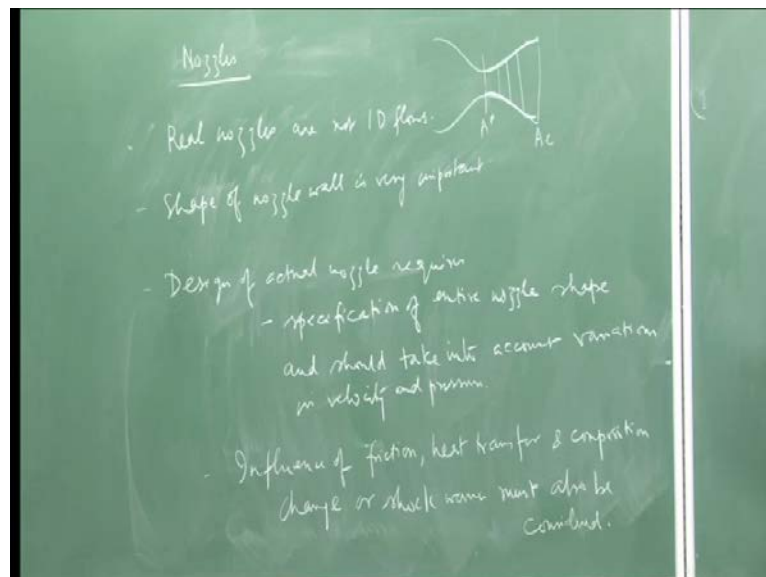 Nozzles
A*
Ae
- Real nozzles are not 1D flows.
- Shape of nozzle wall is very important
- Design of actual nozzle requires
- specification of entire nozzle shape
and should take into account variations
in velocity and pressure.
- Influence of friction, heat transfer & composition
change or shock waves must also be
considered.